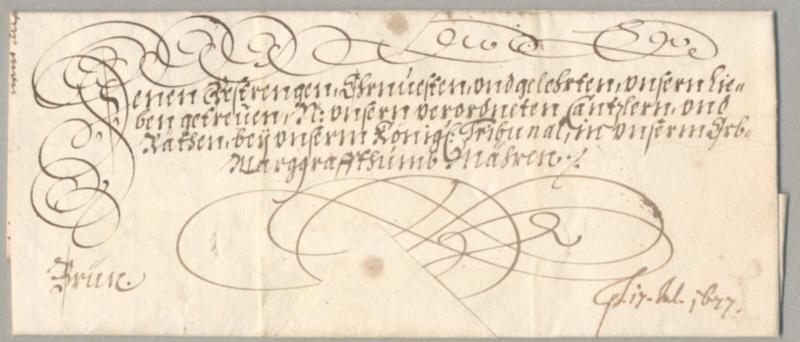 Denen Gestrengen, Ehrnuesten, vnd gelehrten, vnsern Lie=
ben getreüen, N: vnsern verordneten Cantzlern, vnd
Räthen, beÿ vnserm Königl: Tribunal, in vnserm Erb=
Marggraffthumb Mähren ./.
Brün.
17. Jul. 1677.